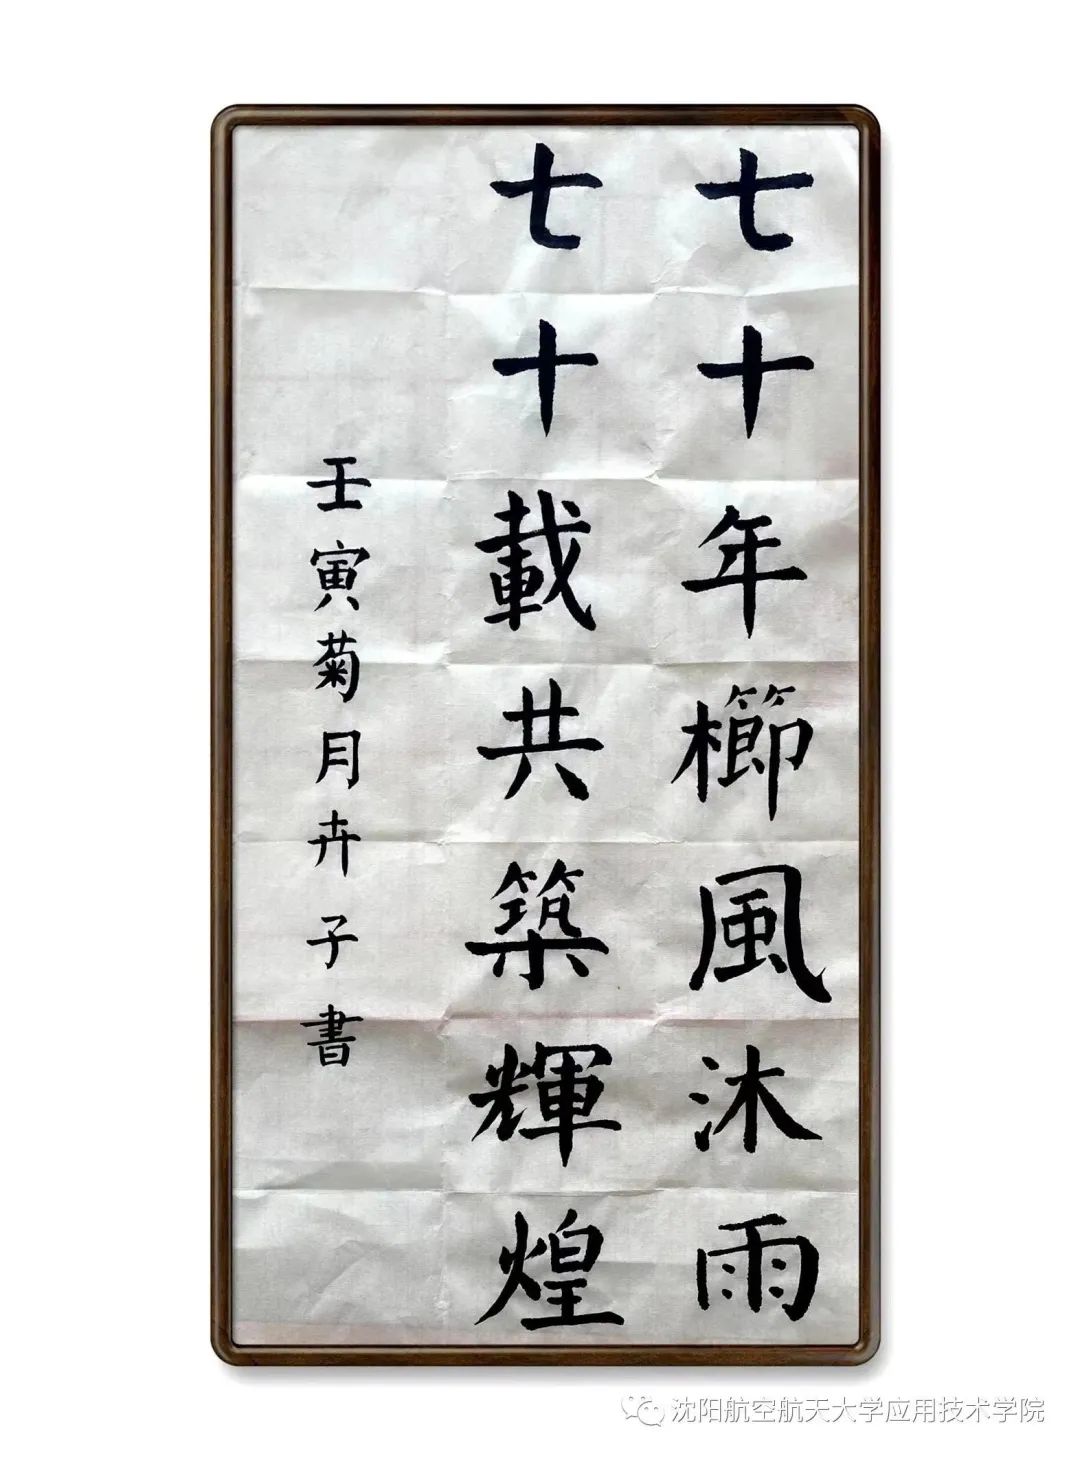 七十年櫛風沐雨
七十載共築輝煌
壬寅菊月卉子書
沈阳航空航天大学应用技术学院